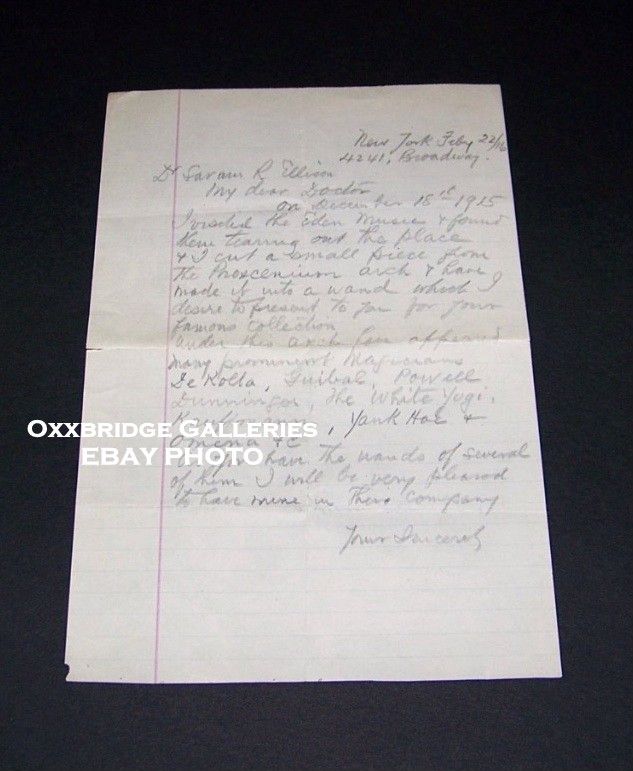 New York Feby 22/16
4241, Broadway.
Dr Saram R Ellison
My dear Doctor
on December 18th 1915
I visited the Eden Musee & found
them tearing out the place
& I cut a small piece from
the Proscenium arch & have
made it into a wand which I
desire to present to you for your
famous collection
under this arch have appeared
many prominent Magicians
De Kolta, Guibal, Powell
Dunninger, The White Yogi,
, Yank Hoe &
Omena &c
OXXBRIDGE GALLERIES
EBAY PHOTO
have the wands of several
of him I will be very pleased
to have mine in there company
Yours Sincerely